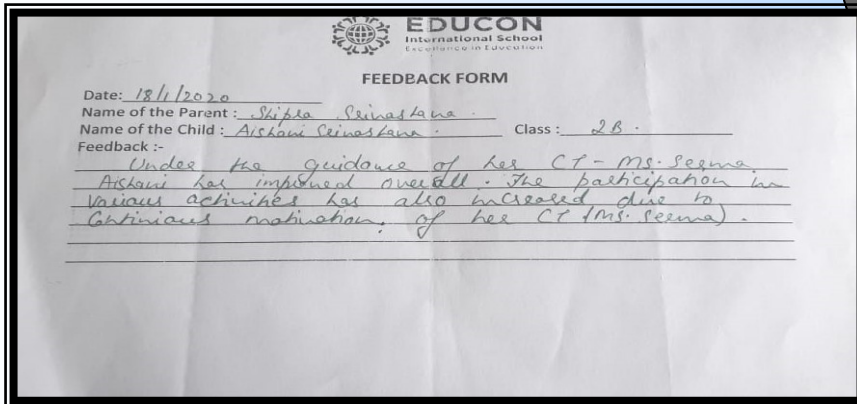 EDUCON
International School
Excellence in Education
FEEDBACK FORM
Date: 18/1/2020
Name of the Parent : Shipra Srivastava.
Name of the Child : Aishani Srivastava. Class : 2B.
Feedback :-
Under the guidance of her CT - Ms. Seema
Aishani has improved overall. The participation in
various activities has also increased due to
Continious motivation. of her CT (Ms. Seema).